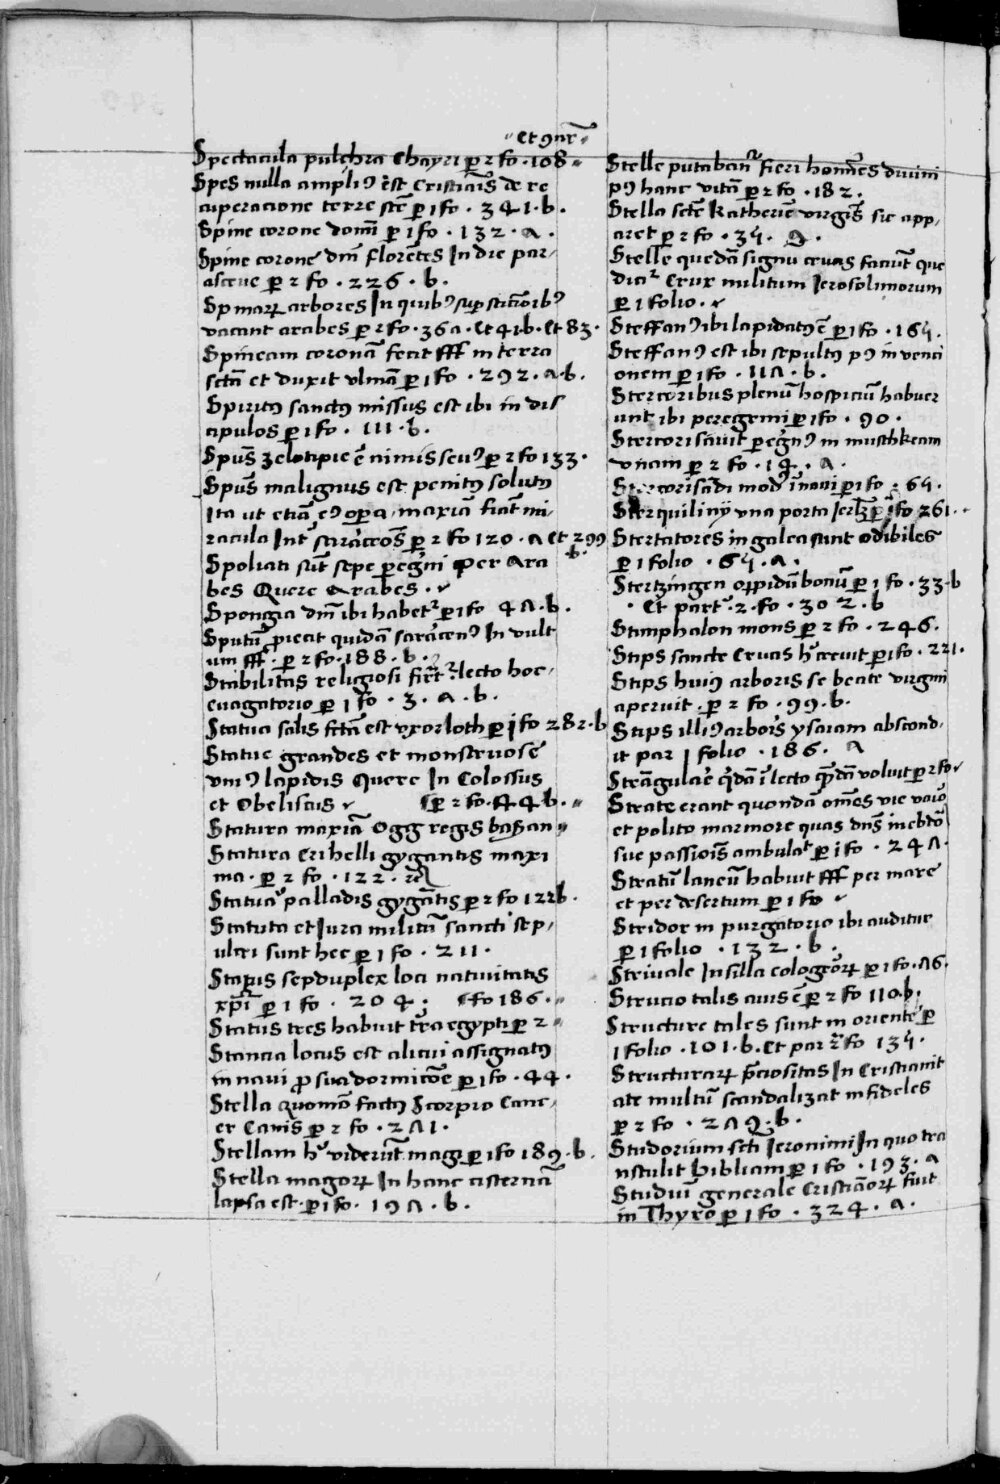 et ɔnr̃
Spectacula pulchra Chayri ꝑ 2 fo · 108
Spes nulla ampliꝰ ẽst Cristianis de re
cuperacione terre scte ꝑ 1 fo · 341 · b ·
Spine corone domī ꝑ 1 fo · 132 · a ·
Spine corone dnī florẽtes In die par/
asceue ꝑ 2 fo · 226 · b ·
Spinaꝝ arbores In quibꝰ suꝑsticionibꝰ
vacant arabes ꝑ 2 fo · 36 a · et 41 · b · et 83 ·
Spineam coronā fecit fff in terra
sctā et duxit vlmā ꝑ 1 fo · 292 · a · b ·
Spiritꝰ sanctꝰ missus est ibi in dis
cipulos ꝑ 1 fo · 111 · b ·
Spūs zelotipie ẽ nimis seuꝰ ꝑ 2 fo 133 ·
Spūs malignus est penitꝰ solutꝰ
Ita ut etiā eꝰ oꝑa maxīa fiāt mi/
racula Int̃ saraceōs ꝑ 2 fo 120 · a et 299
b ·
Spoliati sūt sepe ꝑegrini per Ara
bes Quere Arabes ·
Spongia dnī ibi habet᷑ ꝑ 1 fo 47 · b ·
Sputū proiecit quidā saracenꝰ In vult
um fff · ꝑ 2 fo · 188 · b ·
Stabilitas religiosi firt᷑ lecto hoc/
euagatorio ꝑ 1 fo · 3 · a · b ·
Statua salis fctā est vxor loth ꝑ 1 fo 282 · b
Statue grandes et monstruose
vniꝰ lapidis Quere In Colossus
et Obeliscus ꝑ 2 fo · 44 b ·
Statura maxīa Ogg regis basan
Statura Crihelli gygantis maxi
ma · ꝑ 2 fo · 122 ·
Statua palladis gygātis ꝑ 2 fo 122 b ·
Statuta et Iura militū sancti sep/
ulcri sunt hec ꝑ 1 fo · 211 ·
Stapis sepduplex loci natiuitatis
xp̄i ꝑ 1 fo · 204 · fo 186 ·
Status tres habuit t̃ra egypti ꝑ 2
Stancia locus est alicui assignatꝰ
in naui pro sua dormicōe ꝑ 1 fo · 44 ·
Stella quomō factꝰ Scorpio Canc/
er Canis ꝑ 2 fo · 271 ·
Stellam h᷑ viderūt magi ꝑ 1 fo 189 · b ·
Stella magoꝝ In hanc cisternā
lapsa est · ꝑ 1 fo · 197 · b ·
Stelle putabant᷑ fieri homīes diuini
pꝰ hanc vitā ꝑ 2 fo · 182 ·
Stella scte Katherīe virgis sic app/
aret ꝑ 2 fo · 35 ·
Stelle quedā signū crucis faciūt que
dicit᷑ Crux militum Ierosolimorum
ꝑ 1 folio ·
Steffanꝰ ibi lapidatꝰ ẽ ꝑ 1 fo · 165 ·
Steffanꝰ est ibi sepultꝰ pꝰ in venci
onem ꝑ 1 fo · 117 · b ·
Stercoribus plenū hospiciū habuer
unt ibi peregrini ꝑ 1 fo · 90 ·
Stercorisauit ꝑegrinꝰ in muschkeam
vnam ꝑ 2 fo · 14 · a ·
Stercorisādi modꝰ ī naui ꝑ 1 fo · 65 ·
Sterquilinij vna porta Ierlꝫ ꝑ 1 fo 261 ·
Stertatores in galea sunt odibiles
ꝑ 1 folio · 65 · a ·
Stertzingen oppidū bonū ꝑ 1 fo · 33 · b
· Et part᷑ · 2 · fo · 302 · b
Stimphalon mons ꝑ 2 fo · 246 ·
Stips sancte Crucis h᷑ creuit ꝑ 1 fo · 221 ·
Stips huiꝰ arboris se beate virgini
aperuit · ꝑ 2 fo · 99 · b ·
Stips illiꝰ arboris ysaiam abscond/
it par 1 folio · 186 · a
Strāgulare q̄dā ī lecto quēdā voluit ꝑ 2 fo
Strate erant quondā om̄es vie vario
et polito marmore quas dn̄s in ebdō
sue passiois ambulat᷑ ꝑ 1 fo · 247 ·
Stratū laneū habuit fff per mare
et per desertum ꝑ 1 fo
Stridor in purgatorio ibi auditur
ꝑ 1 folio · 132 · b ·
Striuale Insilla cologeoꝝ ꝑ 1 fo · 76 ·
Strucio talis auis ẽ ꝑ 2 fo 110 · b ·
Structure tales sunt in oriente ꝑ
1 folio · 101 · b · Et par 2 fo 135 ·
Structuraꝝ p̄ciositas In Cristianit
ate multū scandalizat infideles
ꝑ 2 fo · 279 · b ·
Studorium scti Ieronimi In quo tra
nstulit bibliam ꝑ 1 fo · 193 · a
Studiū generale Cristianoꝝ fuit
in Thyro ꝑ 1 fo · 324 · a ·